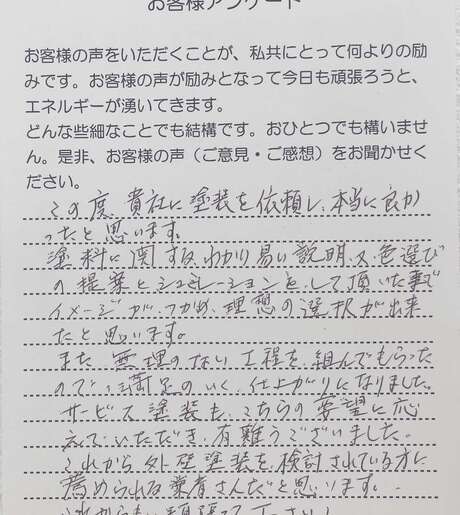 お客様アンケート
お客様の声をいただくことが、私共にとって何よりの励
みです。お客様の声が励みとなって今日も頑張ろうと、
エネルギーが湧いてきます。
どんな些細なことでも結構です。おひとつでも構いませ
ん。是非、お客様の声（ご意見・ご感想）をお聞かせく
ださい。
この度、貴社に塗装を依頼し、本当に良か
ったと思います。
塗料に関するわかり易い説明、又、色選び
の提案とシュミレーションをして頂いた事で
イメージがつかめ、理想の選択が出来
たと思います。
また、無理のない工程を組んでもらった
ので、満足のいく仕上がりになりました。
サービス塗装も、こちらの要望に応
えていただき、有難うございました。
これから外壁塗装を検討されている方に
薦められる業者さんだと思います。
これからも頑張って下さい！